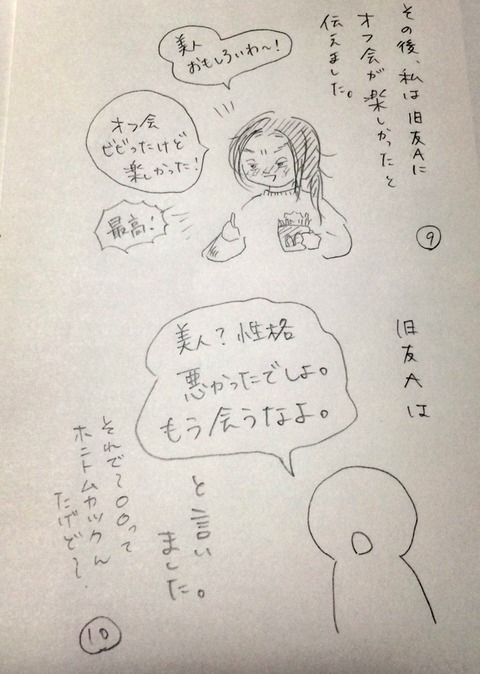 その後、私は旧友Aに
オフ会が楽しかったと
伝えました。
美人
おもしろいわ〜!
オフ会
ビビったけど
楽しかった!
最高!
⑨
旧友Aは
美人?性格
悪かったでしょ。
もう会うなよ。
と言い
ました。
それで〜〇〇って
ホントムカツクん
だけど〜.
⑩